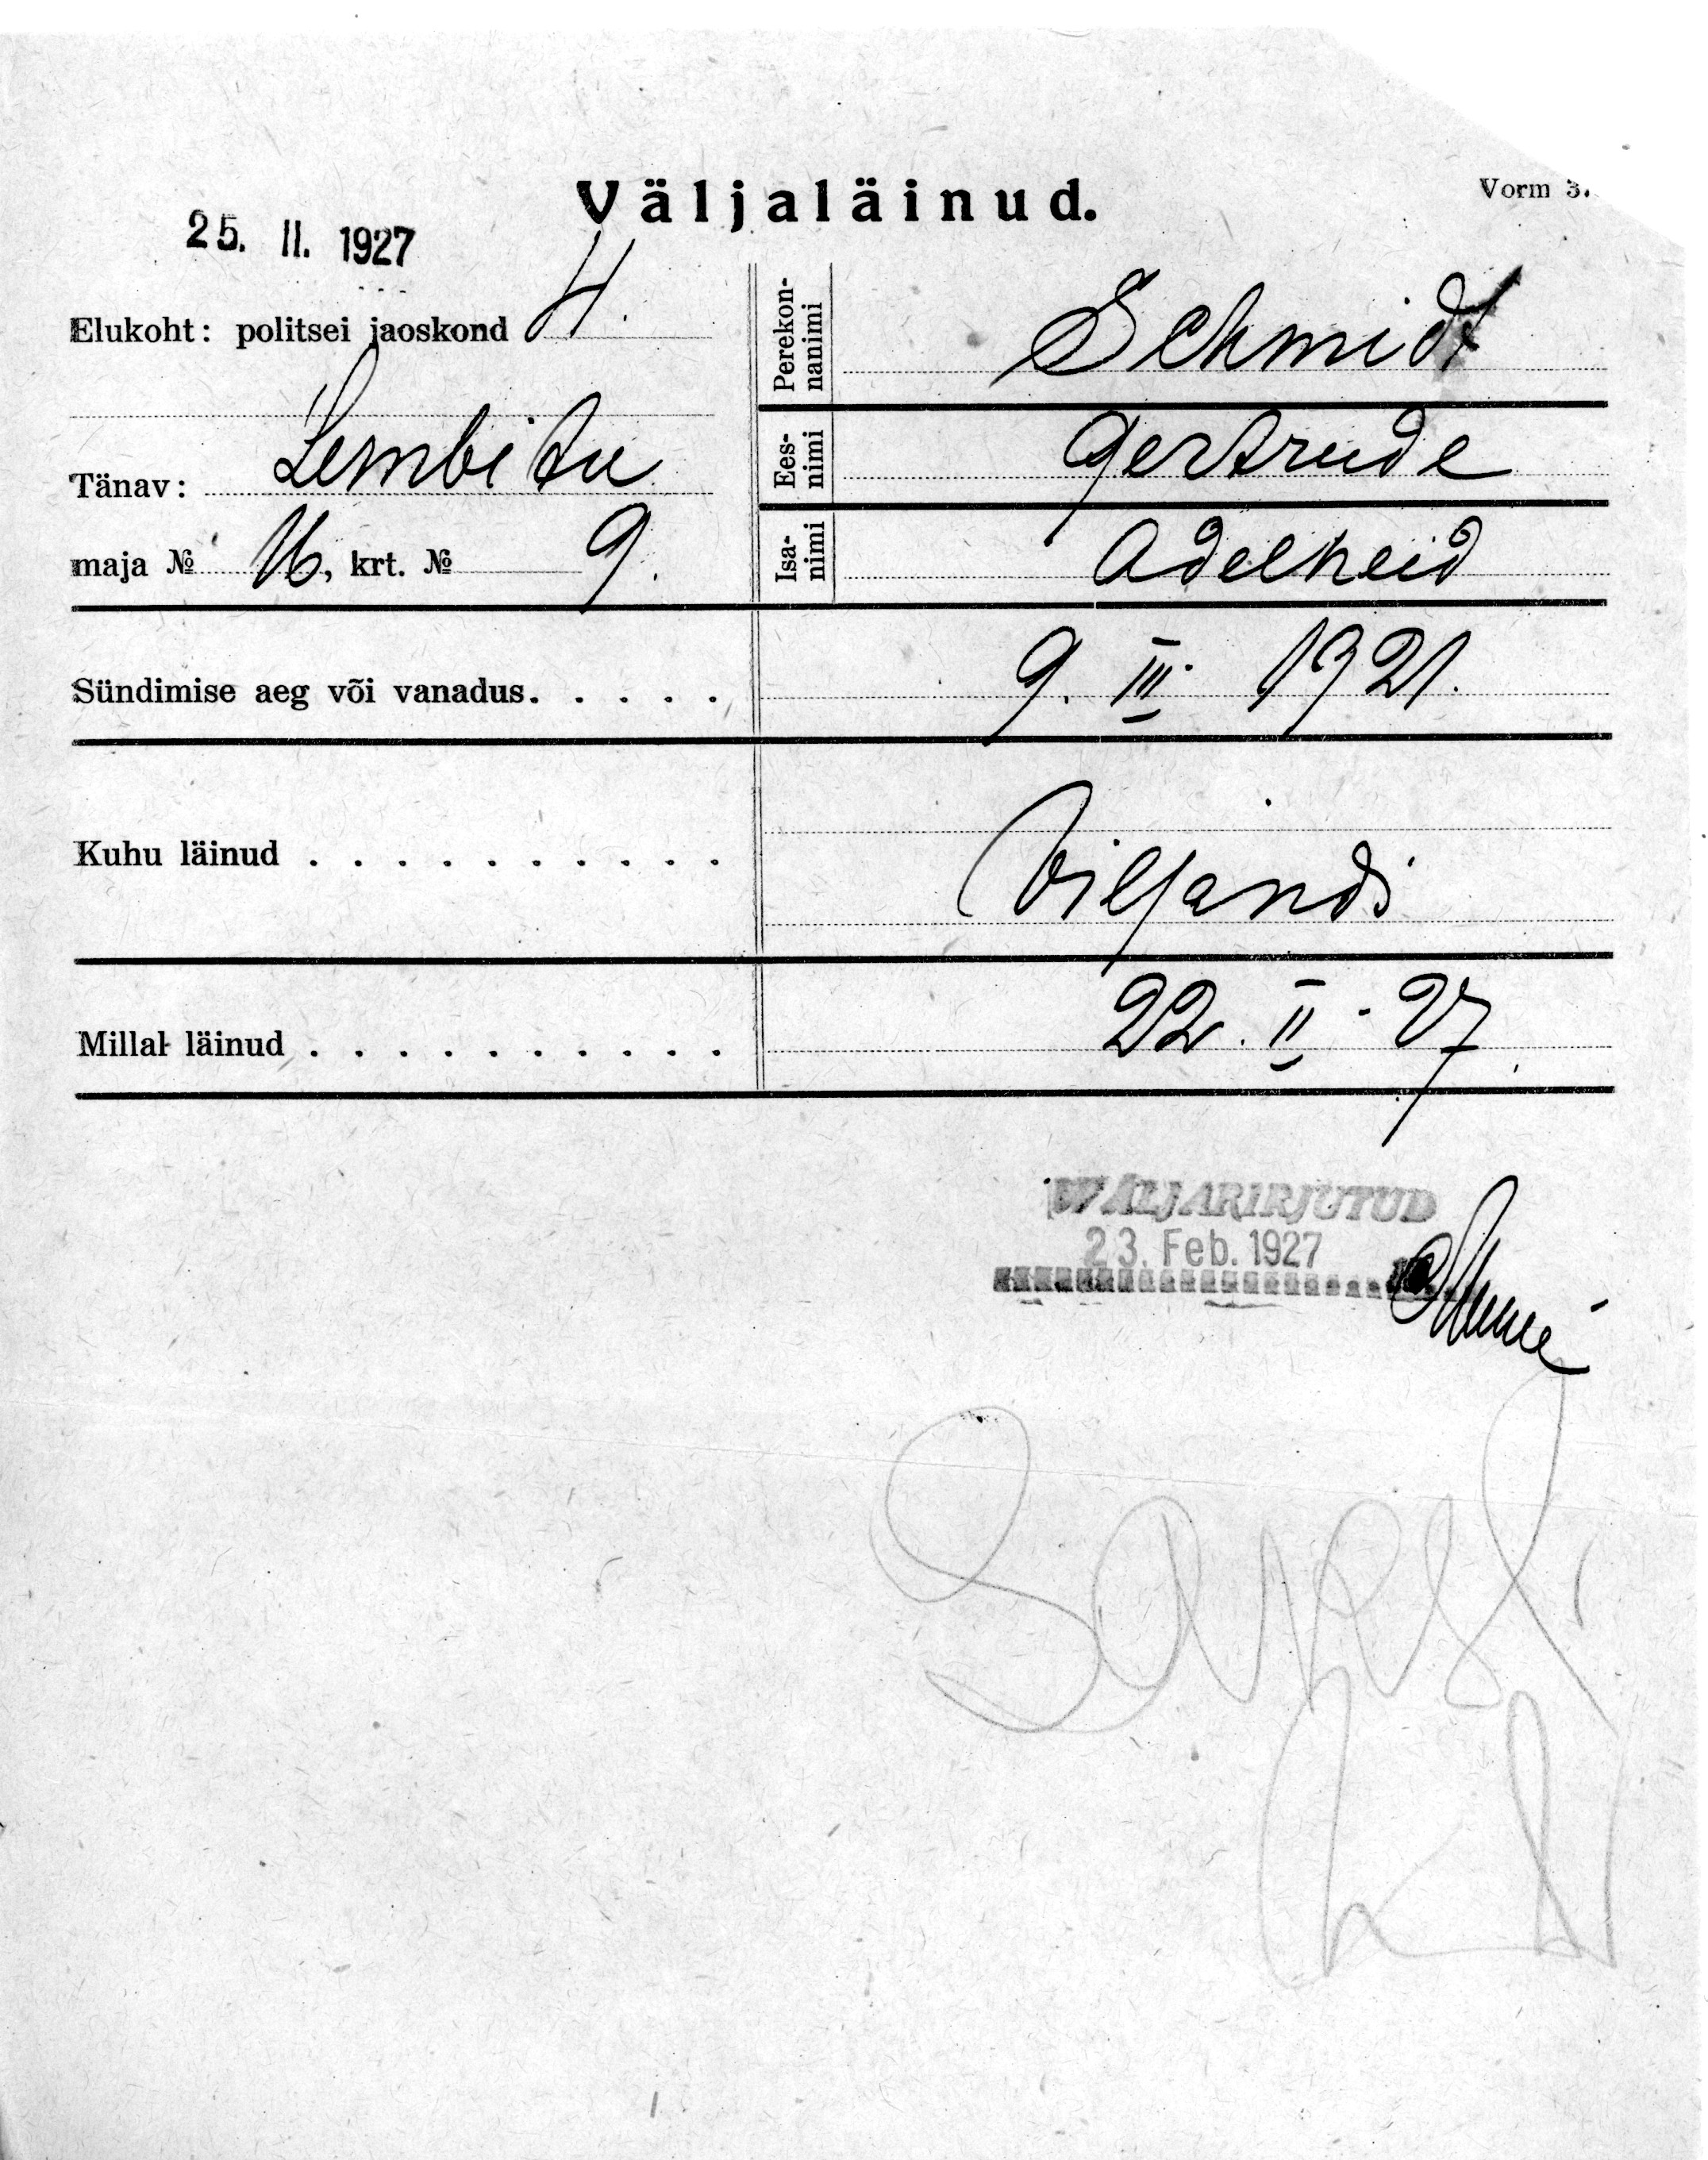 Väljaläinud.
Vorm 3.
25. II. 1927
Elukoht: politsei jaoskond 4.
Tänav: Lembitu
maja № 16, krt. № 9.
Perekon-
nanimi
Schmidt
Ees-
nimi
Gertrude
Isa-
nimi
Adelheid
Sündimise aeg või vanadus. . . . . 9. III. 1921.
Kuhu läinud . . . . . . . . . . Viljandi
Millal läinud . . . . . . . . . . 22. II. 27.
VÄLJAKIRJUTUD
23. Feb. 1927